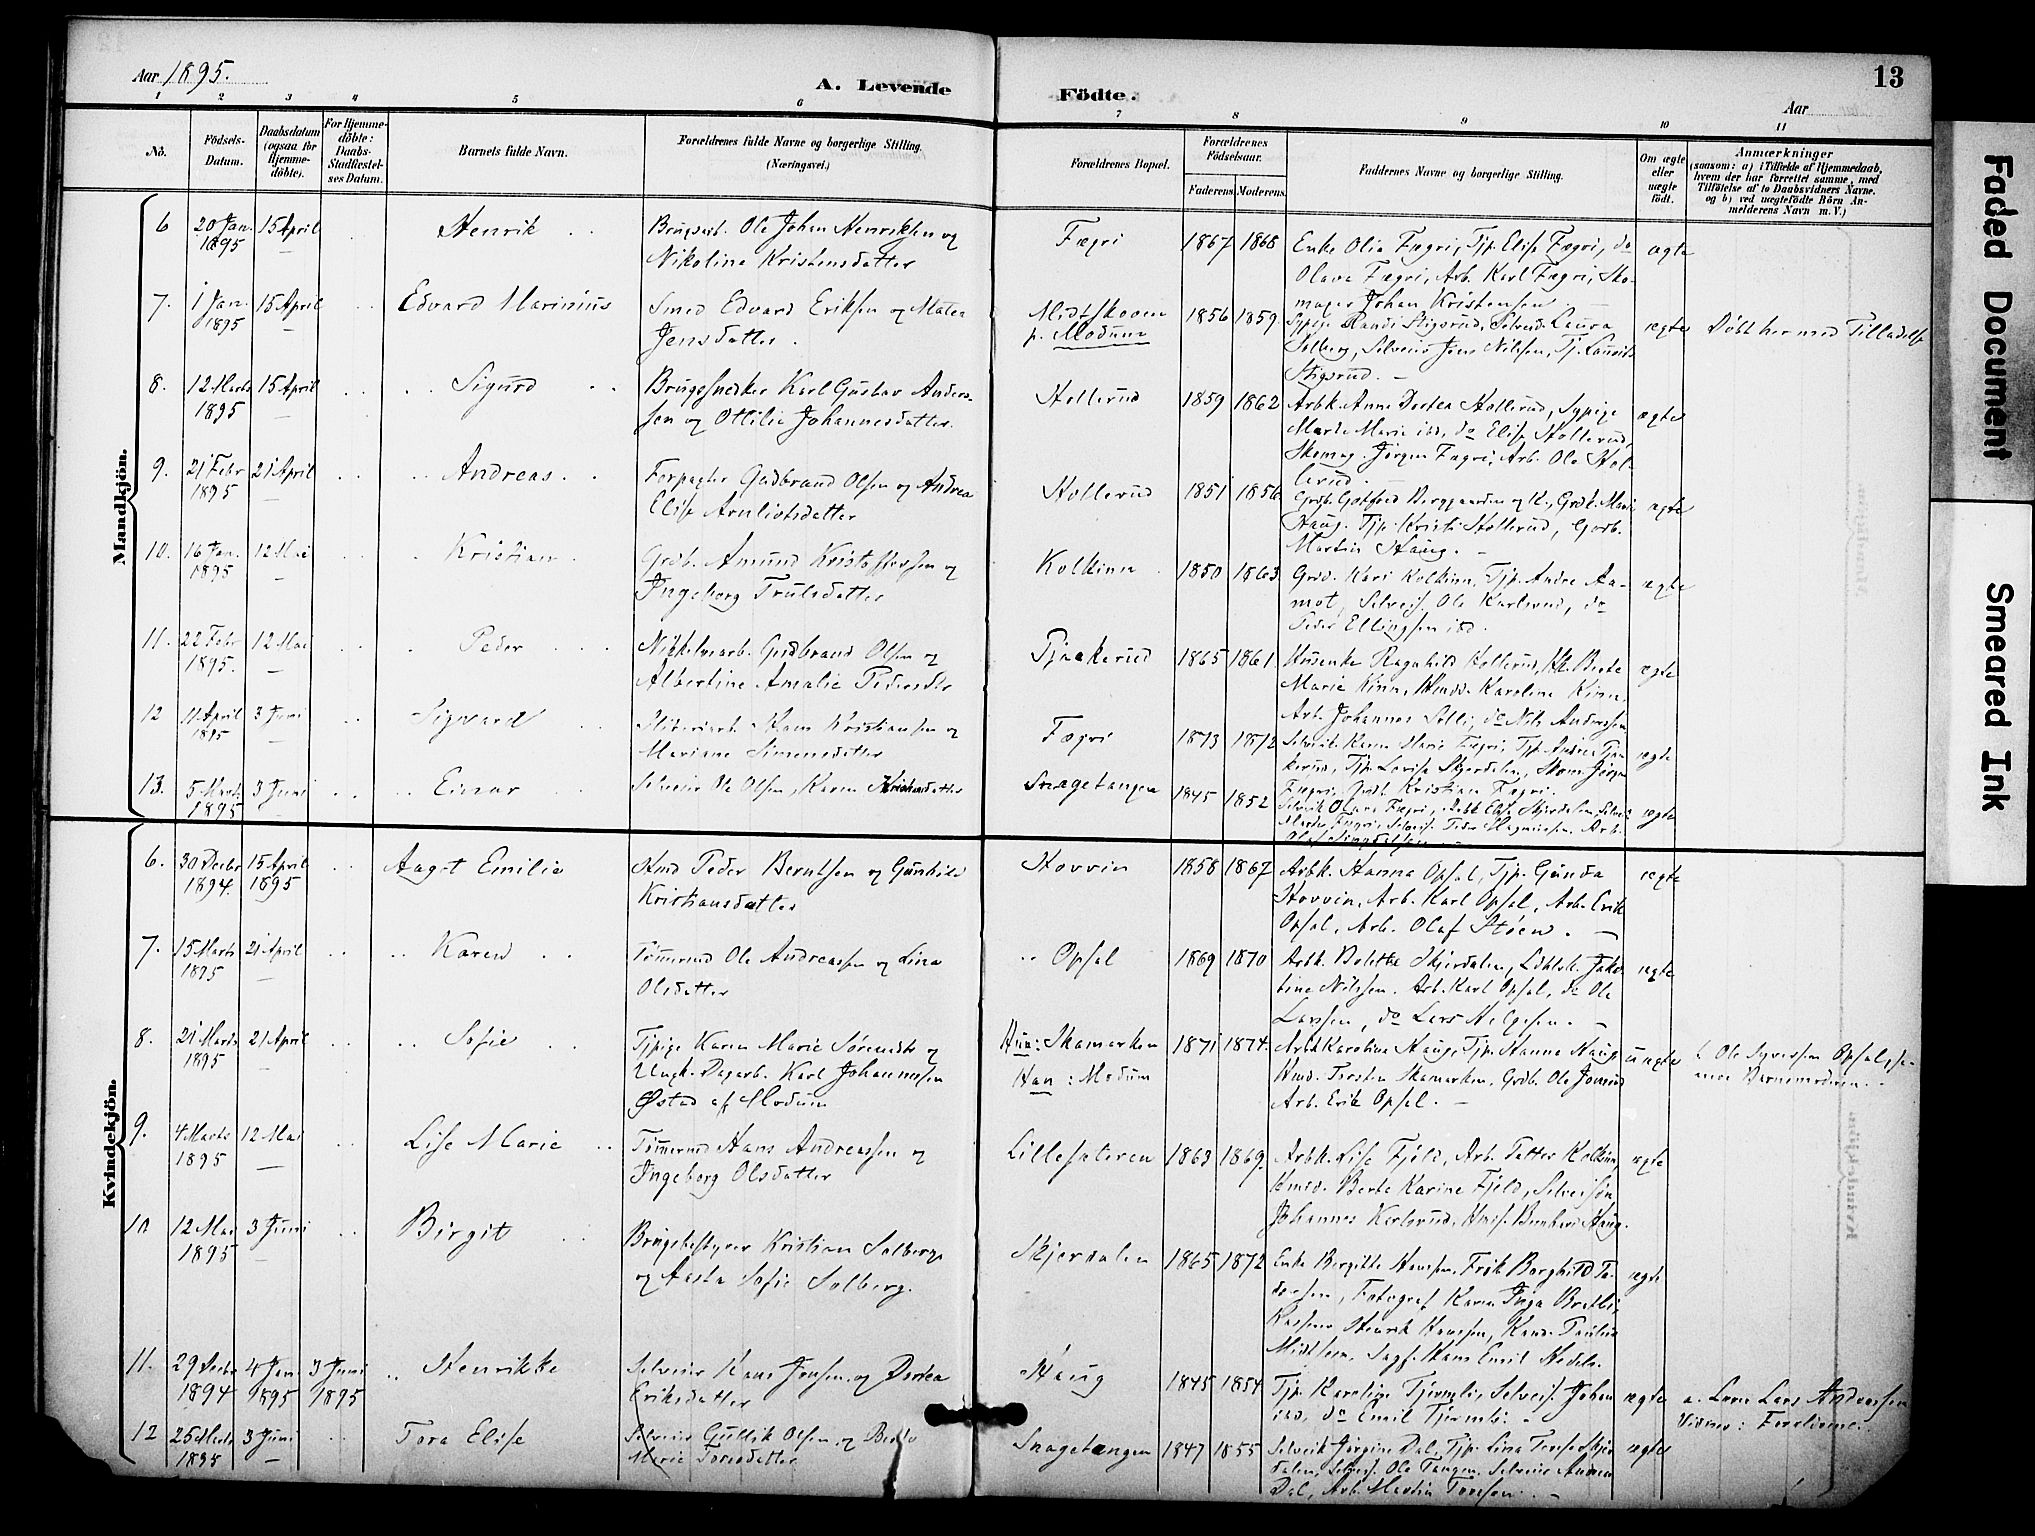 Aar 1895.
A. Levende
Födte.
Aar
13
1 2 3 4 5 6 7 8 9 10 11
No.
Födsels-Datum.
Daabsdatum (ogsaa for Hjemmedöbte).
For Hjemmedöbte: Daabs-Stadfæstelses Datum.
Barnets fulde Navn.
Forældrenes fulde Navne og borgerlige Stilling. (Næringsvei.)
Forældrenes Bopæl.
Forældrenes Fødselsaar.
Faderens. Moderens.
Faddernes Navne og borgerlige Stilling.
Om ægte eller uægte födt.
Anmærkninger
(saasom: a) i Tilfælde af Hjemmedaab, hvem der har forrettet samme, med Tilföielse af to Daabsvidners Navne. og b) ved uægtefödte Börn Anmelderens Navn m. V.)
Mandkjön.
6 20 Jan. 1895 15 April Henrik Brugsarb. Ole Johan Henriksen og Nikoline Kristensdatter Fægri 1867 1868 Enke Olia Fægri, Tjp. Elise Fægri, do Olava Fægri, Arb. Karl Fægri, Skomager Johan Kristensen ægte
7. 1 Jan. 1895 15 April Edvard Marinius Smed Edvard Eriksen og Matea Jensdatter. Midtskoven p. Modum 1856 1859 Sypige Randi Stigsrud, Selveid. Laura Solberg, Selveier Jens Nilsen, Tj. Laurits Stigsrud. ægte Døbt her med Tilladelse
8. 12 Marts 1895 15 April Sigurd Brugssnedker Karl Gustav Anderssen og Ottilie Johannesdatter. Hollerud 1859 1862 Arbk. Anne Dortea Hollerud, Sypige Marte Marie ibd, do Elise Hollerud, Skomag. Jörgen Fægri, Arb. Ole Hollerud. ægte
9. 21 Febr 1895 21 April Andreas Forpagter Gudbrand Olsen og Andrea Elise Arnliotsdatter Hollerud 1851 1856 Grdb. Gotfred Berggaarden og K., Grdk. Mari Haug. Tjp. Kristi Hollerud, Gaardb. Martin Haug. ægte
10. 16 Jan. 1895 12 Mai Kristian Grdb. Amund Kristoffersen og Ingeborg Trulsdatter Kolkinn 1850 1863. Grdk. Kari Kolkinn, Tjp. Andre Aamot, Selveis. Ole Karlsrud, do Peder Ellingsen ibd. ægte
11. 22 Febr 1895. 12 Mai Peder Nikkelverarb. Gudbrand Olsen og Albertine Amalie Pedersdtr Tjnakerud 1865 1861. Husenke Ragnhild Hollerud, Hk. Berte Marie Kinn, Hmdd. Karoline Kinn. Arb. Johannes Solli, do Nils Anderssen ægte
12 11 April 1895 3 Juni Sigvard Sliberiarb. Hans Kristiansen og Mariane Simensdatter Fægri 1873 1872 Selveik. Karen Marie Fægri, Tjp. Andrea Tjnakerud, Tjp. Lovise Skjerdalen, Skom. Jörgen Fægri, Grdb. Kristian Fægri. ægte
13. 5 Marts 1895 3 Juni Einar Selveier Ole Olsen, Karen Kristiansdatter Snagetangen 1845 1852 ægte
Kvindekjön.
6. 30 Decbr 1894. 15 April 1895 Aagot Emilie Hmd Peder Berntsen og Gunhild Kristiansdatter Hovvin 1858 1867 Arbk. Hanna Opsal, Tjp. Gunda Hovvin, Arb. Karl Opsal, Arb. Erik Opsal, Arb. Olaf Støen. ægte
7. 15 Marts 1895 21 April Karen Tömmermd Ole Andreassen og Lina Olsdatter Opsal 1869 1870 Arbk. Bolette Skjerdalen, Jakobine Nilssen. Arb. Karl Opsal, do Ole Larssen, do Lars Helgesen. ægte
8. 21 Marts 1895 21 April Sofie Tjpige Karen Marie Sørensdtr og Ungk. Dagarb. Karl Johannessen Østad af Modum Hun: Skamarken Han: Modum 1871 1874. Arbk Karoline Haug, Tjp. Hanna Haug Hmd. Torsten Skamarken, Grdb. Ole Jonsrud Arb. Erik Opsal. uægte b. Ole Syversen Opsal
9. 4 Marts 1895 12 Mai Lise Marie Tömmermd Hans Andreassen og Ingeborg Olsdatter Lillesæteren 1863 1869. Arbk. Lise Fjeld, Arb. Petter Kolkinn, Hmdd. Berte Karine Fjeld, Selveisön Johannes Karlsrud, Hmds. Bernhard Haug. ægte
10 12 Mai 1895 3 Juni Birgit Brugsbestyrer Kristian Solberg og Aasta Sofie Solberg. Skjerdalen 1865 1872 Enke Birgitte Hanssen, Frøk Borghild Pedersen, Fotograf Karen Inga Bratli, Kasserer Henrik Hanssen, Kand. Paulus Midtheim, Sagf. Hans Emil Hedeln. ægte
11. 29 Decbr 1894 4 Jan. 1895 3 Juni 1895 Henrikke Selveier Hans Jensen og Dortea Eriksdatter Haug 1845 1854 Tjp. Karoline Tjermli, Selveis. Johan ibd, do Emil Tjermli. ægte a. Lars Andreassen Vidner: Forældrene.
12 25 Marts 1895 3 Juni Tora Elise Selveier Gullik Olsen og Berte Marie Toresdatter Snagetangen 1847 1855 Selveik Jörgine Dal, Tjp. Lina Skjerdalen, Selveis. Ole Tangen, Selveier Dal, Arb. Martin Toresen. ægte
Faded Document
Smeared Ink